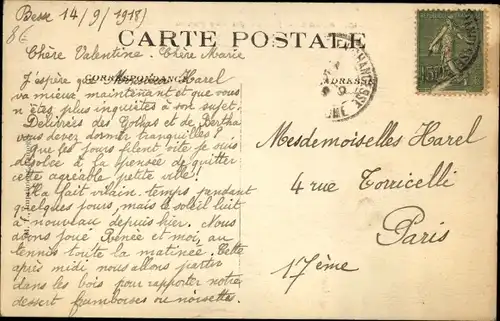 Besse 14/9/1918)
86
CARTE POSTALE
CORRESPONDANCE
ADRESSE
Chère Valentine. Chère Marie
J'espère que Monsieur Harel
va mieux maintenant et que vous
n'êtes plus inquiètes à son sujet.
Délivrées des Gothas et de Bertha
vous devez dormir tranquilles!
que les jours filent vite je suis
désolée à la pensée de quitter
cette agréable petite ville!
Il a fait vilain temps pendant
quelques jours, mais le soleil luit
à nouveau depuis hier. Nous
avons joué Renée et moi, au
tennis toute la matinée. Cette
après midi nous allons partir
dans les bois pour rapporter notre
dessert framboises ou noisettes.
Mesdemoiselles Harel
4 rue Torricelli
Paris
17ème